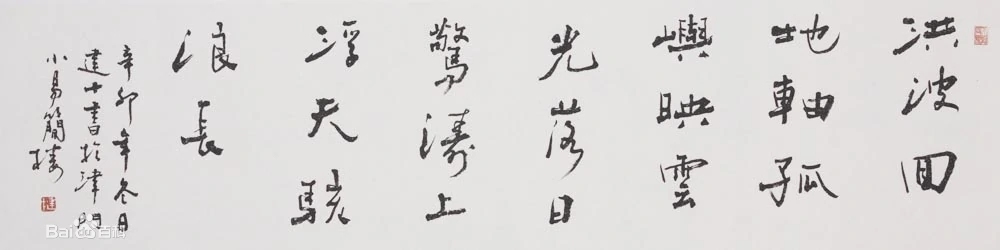 洪波回
地軸孤
嶼映雲
光落日
驚濤上
浮天駭
浪長
辛卯年冬月
建書於津門
小易簡樓
Bai百科